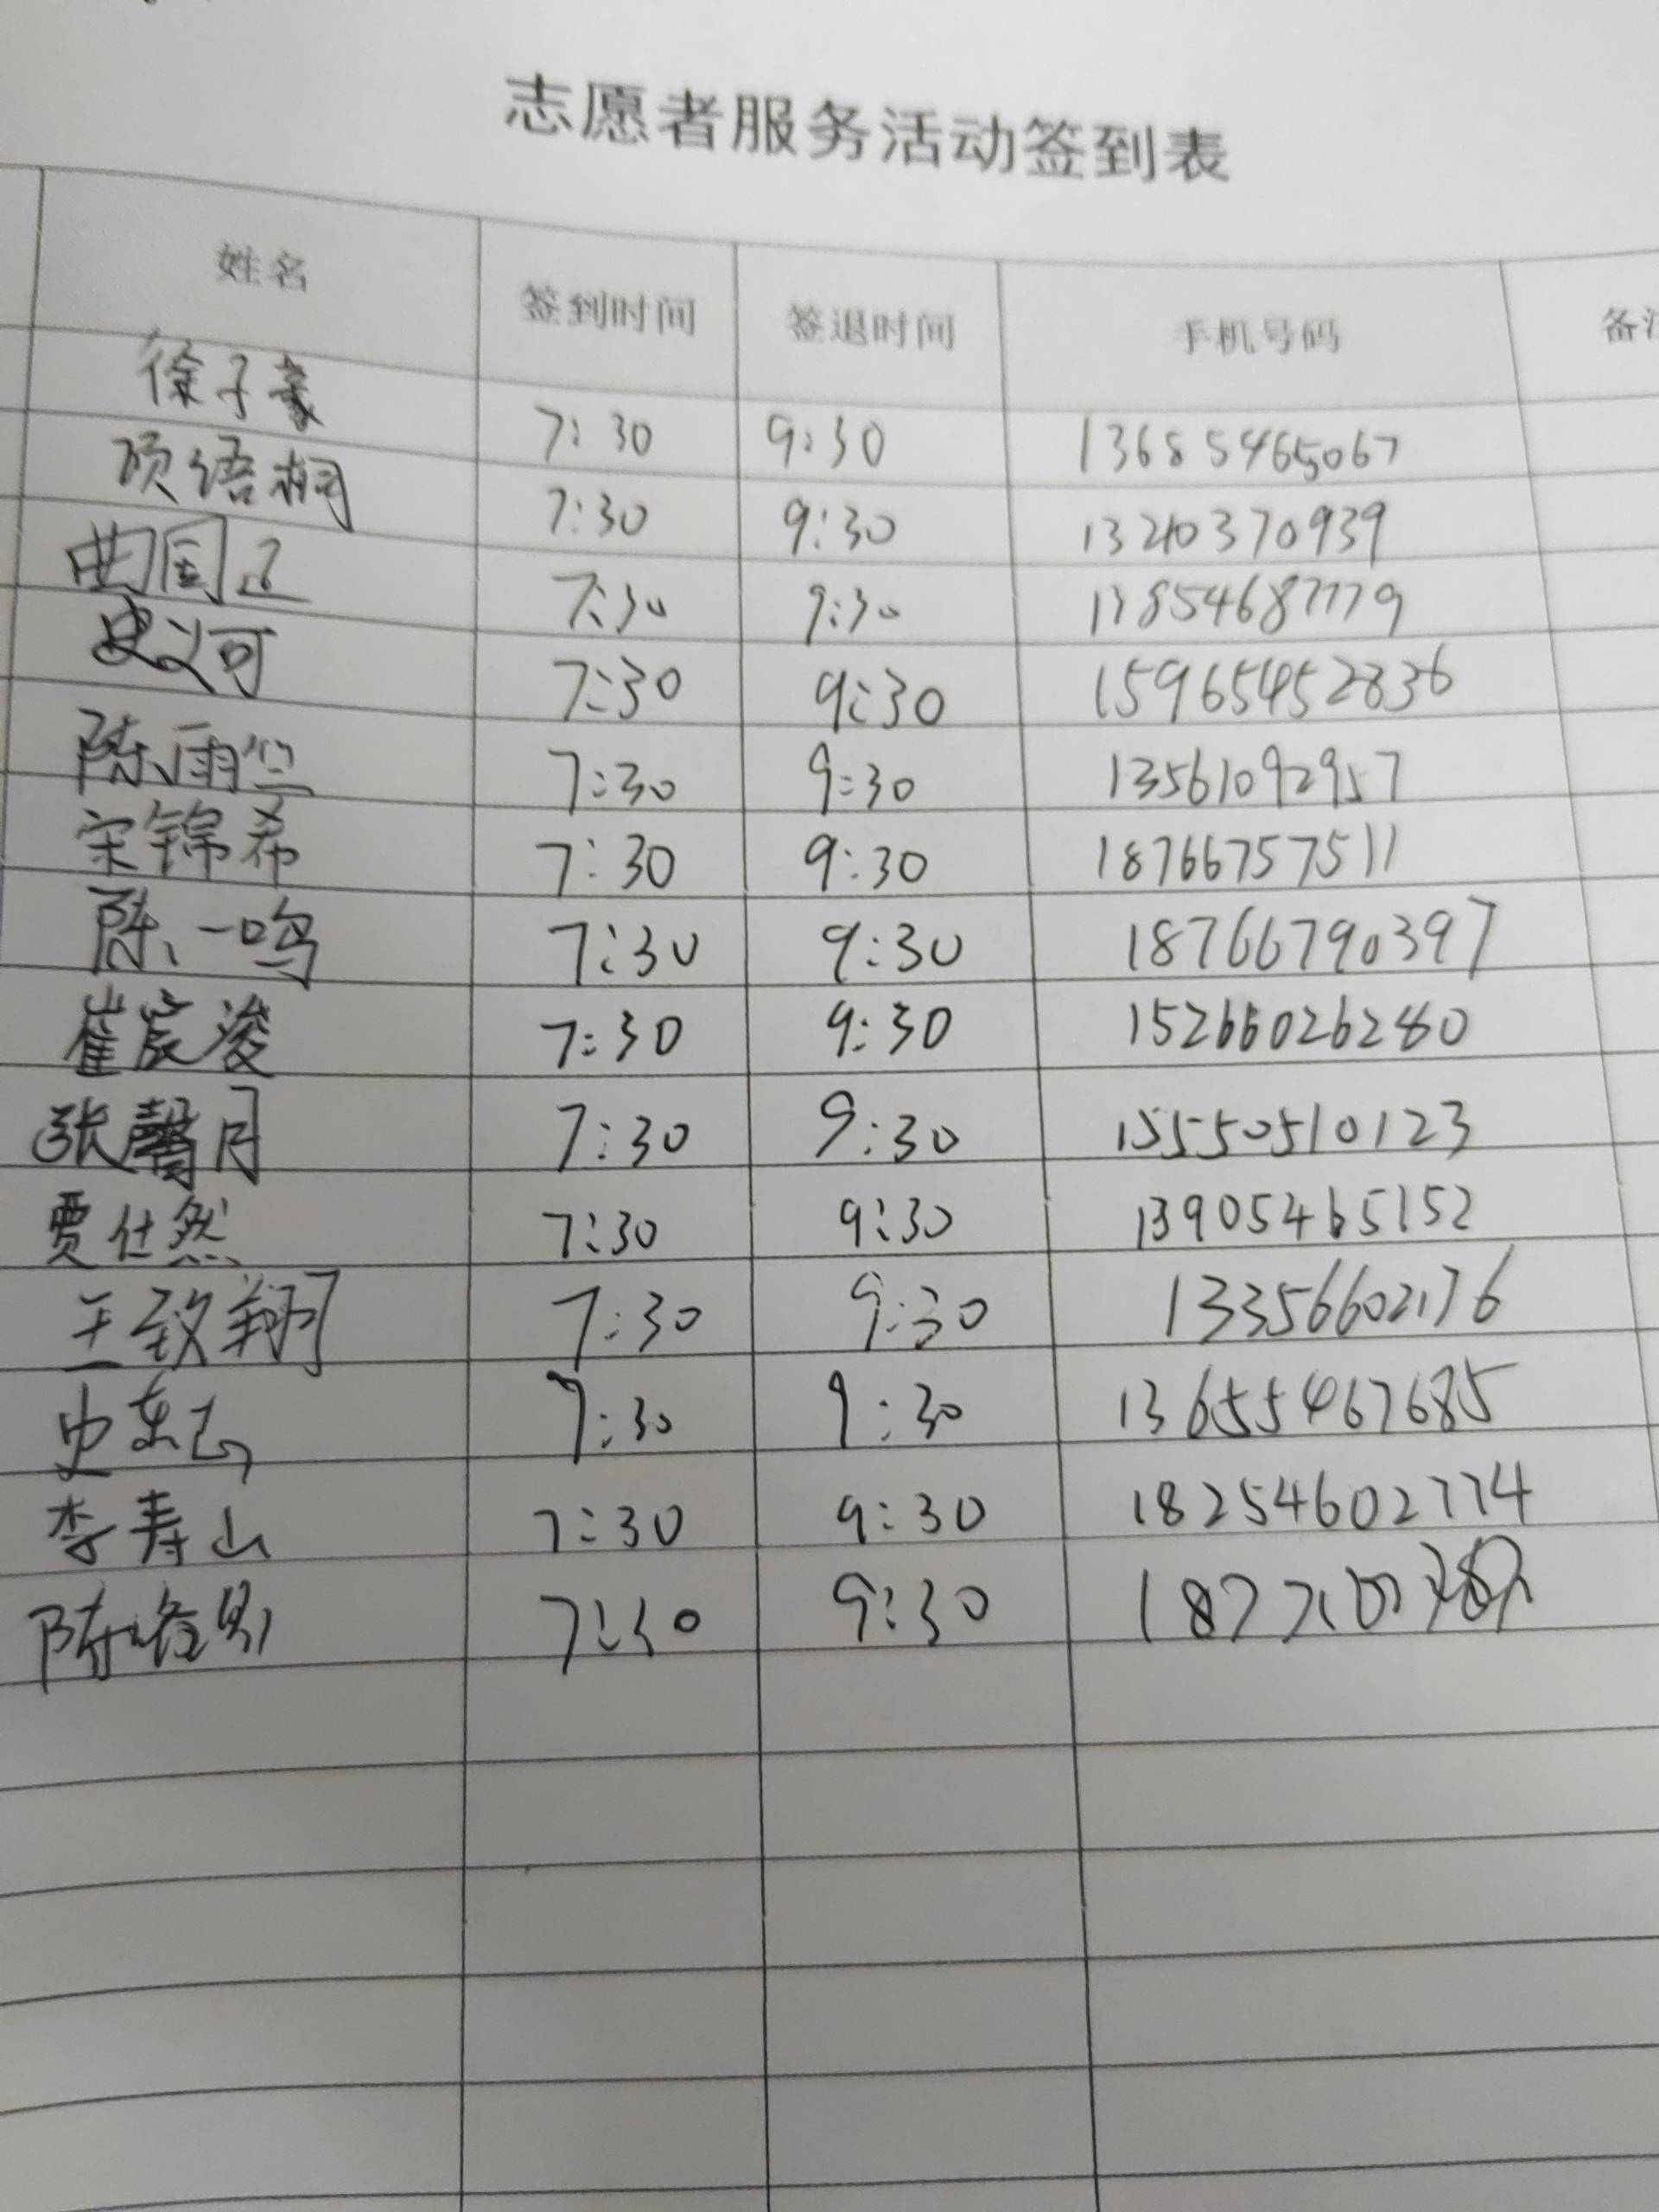 志愿者服务活动签到表
姓名 签到时间 签退时间 手机号码 备注
徐子豪 7:30 9:30 13685465067
项语桐 7:30 9:30 13210370939
曲国正 7:30 9:30 13854687779
史义可 7:30 9:30 15965452836
陈雨竺 7:30 9:30 13561092957
宋锦希 7:30 9:30 18766757511
陈一鸣 7:30 9:30 18766790397
崔宸浚 7:30 9:30 15266026280
张馨月 7:30 9:30 15550510123
贾仕然 7:30 9:30 13905465152
王致翔 7:30 9:30 13356602176
史东 7:30 9:30 13655467685
李寿山 7:30 9:30 18254602774
陈 7:30 9:30